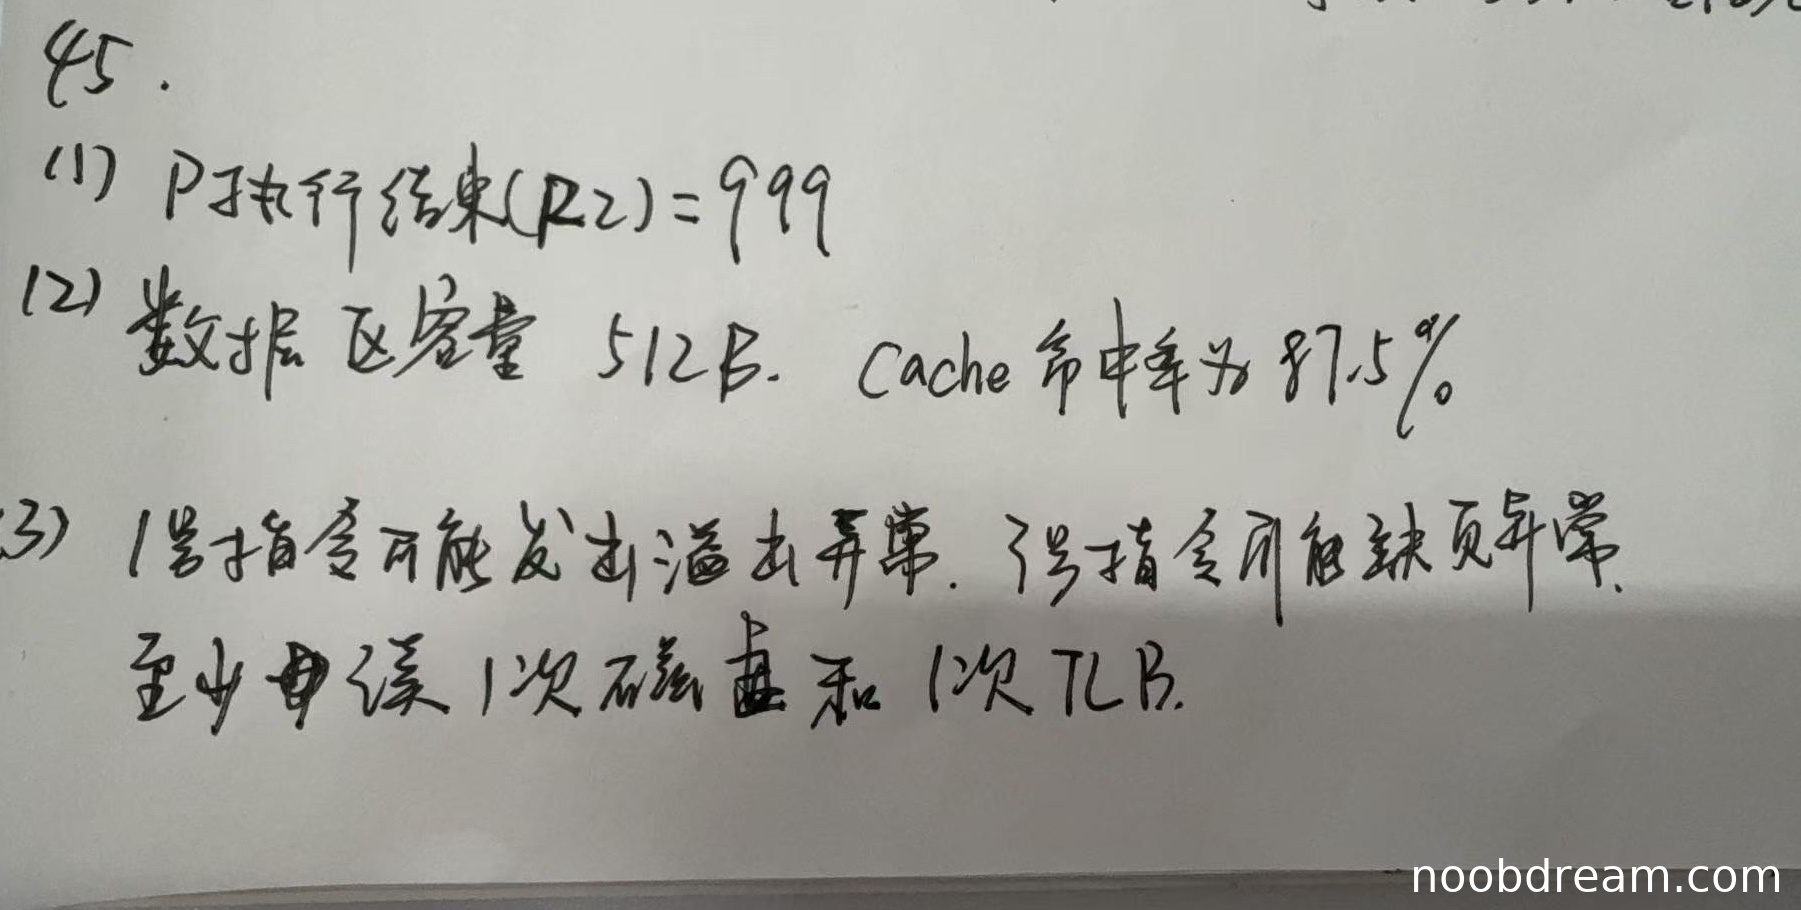 45.
(1) P执行结束(R2)=999
(2) 数据区容量 512B. Cache命中率为87.5%
(3) 1号指令可能发出溢出异常. 3号指令可能缺页异常.
至少 读1次磁盘和1次TLB.
noobdream.com